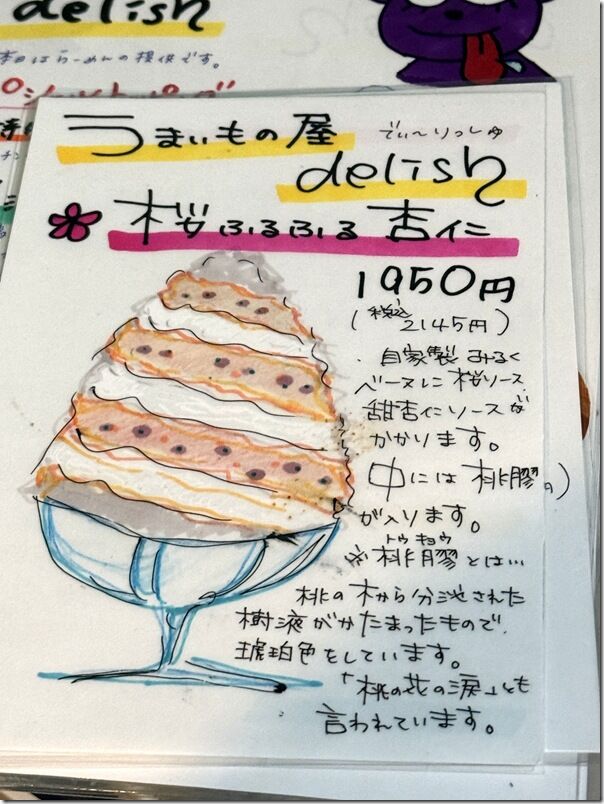 delish
本日はらーめんの提供です。
うまいもの屋
でぃ〜りっしゅ
delish
桜ふるふる杏仁
1950円
(税込2145円)
自家製みるく
ベースに桜ソース
甜杏仁ソースが
かかります。
中には桃膠
が入ります。
トウキョウ
桃膠とは…
桃の木から分泌された
樹液がかたまったもので
琥珀色をしています。
「桃の花の涙」とも
言われています。